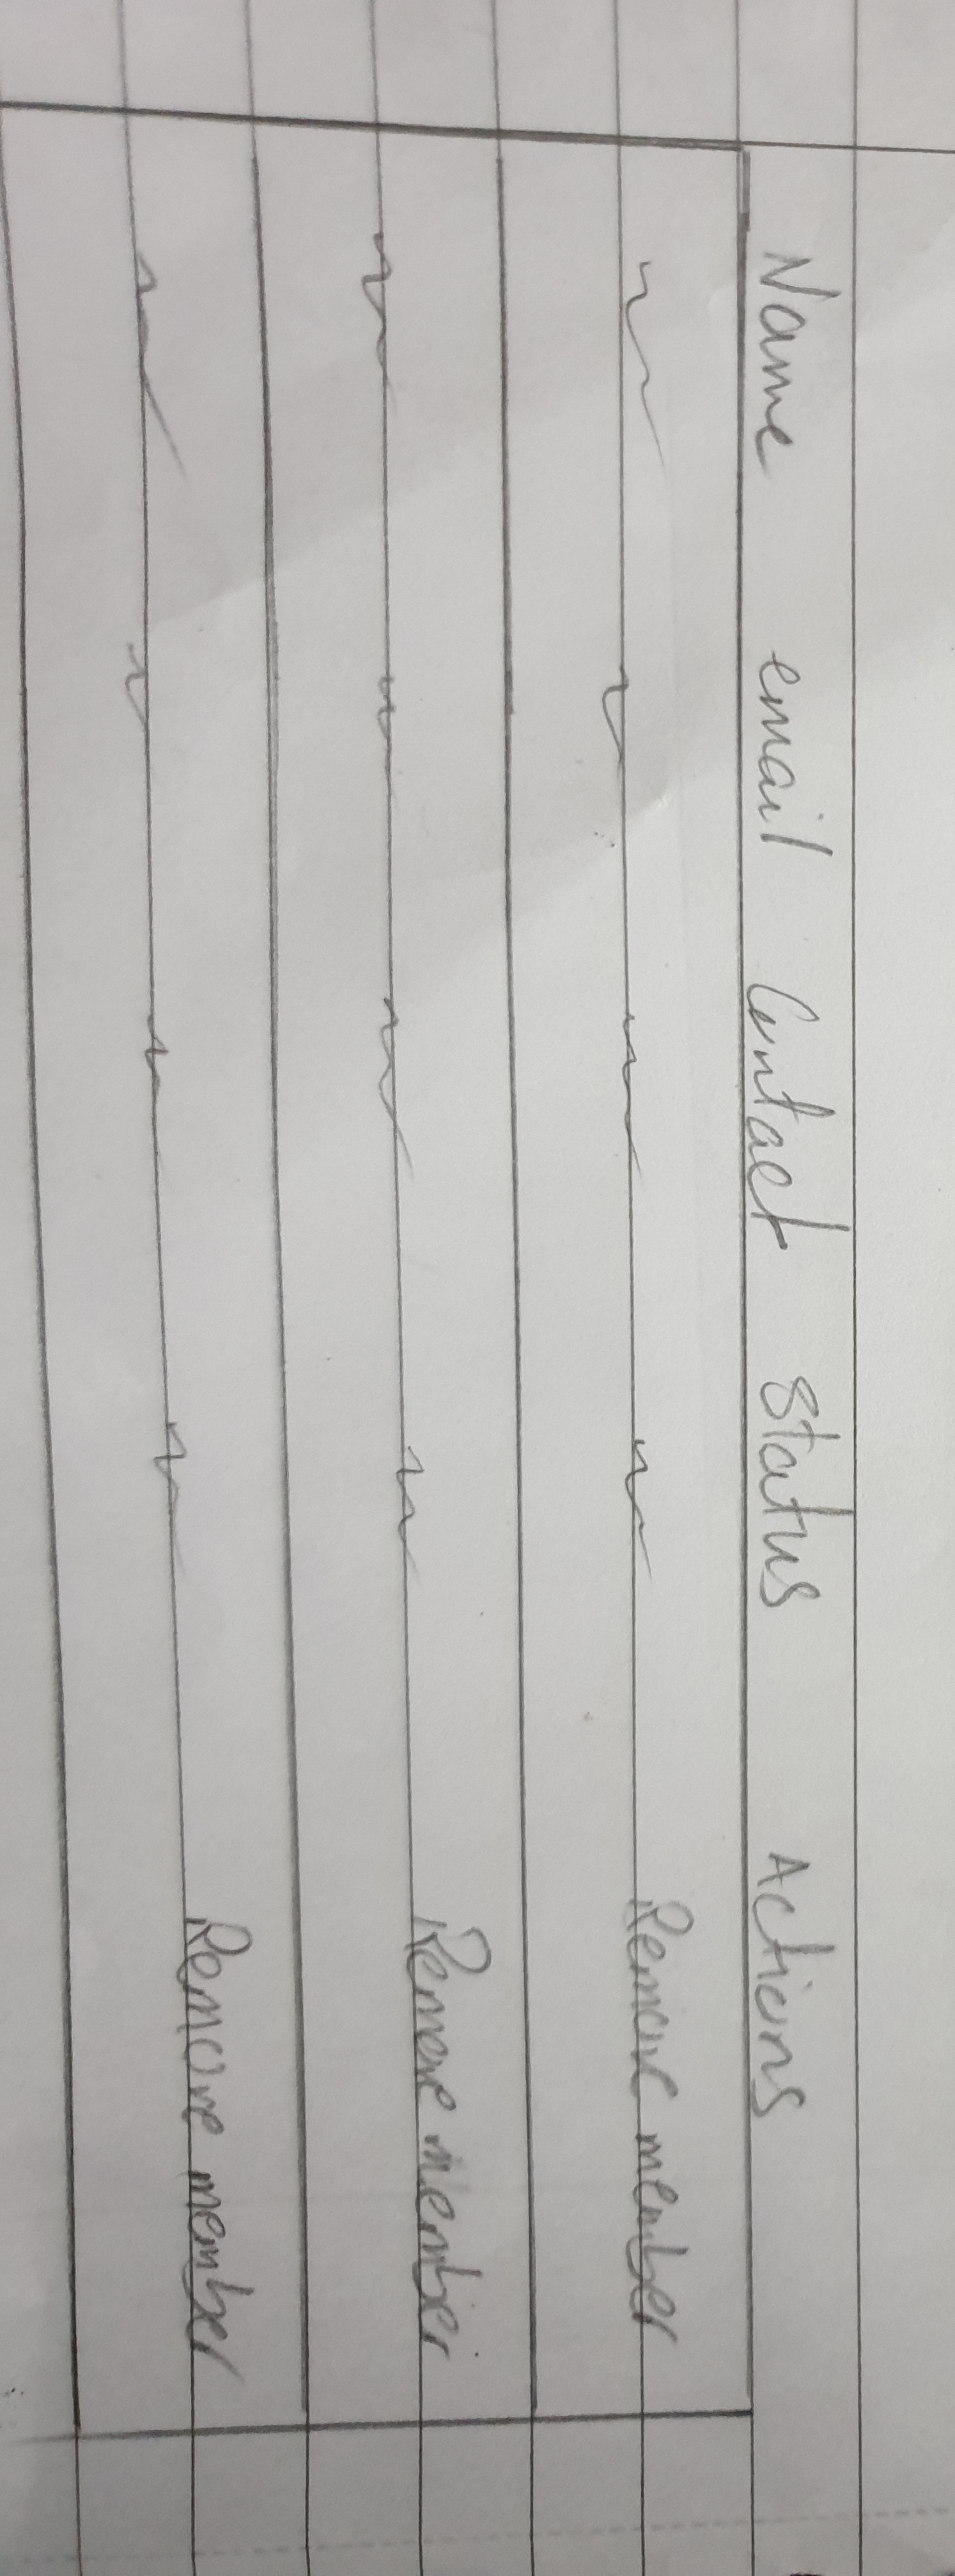 Name email Contact Status Actions
Remove member
Remove member
Remove member